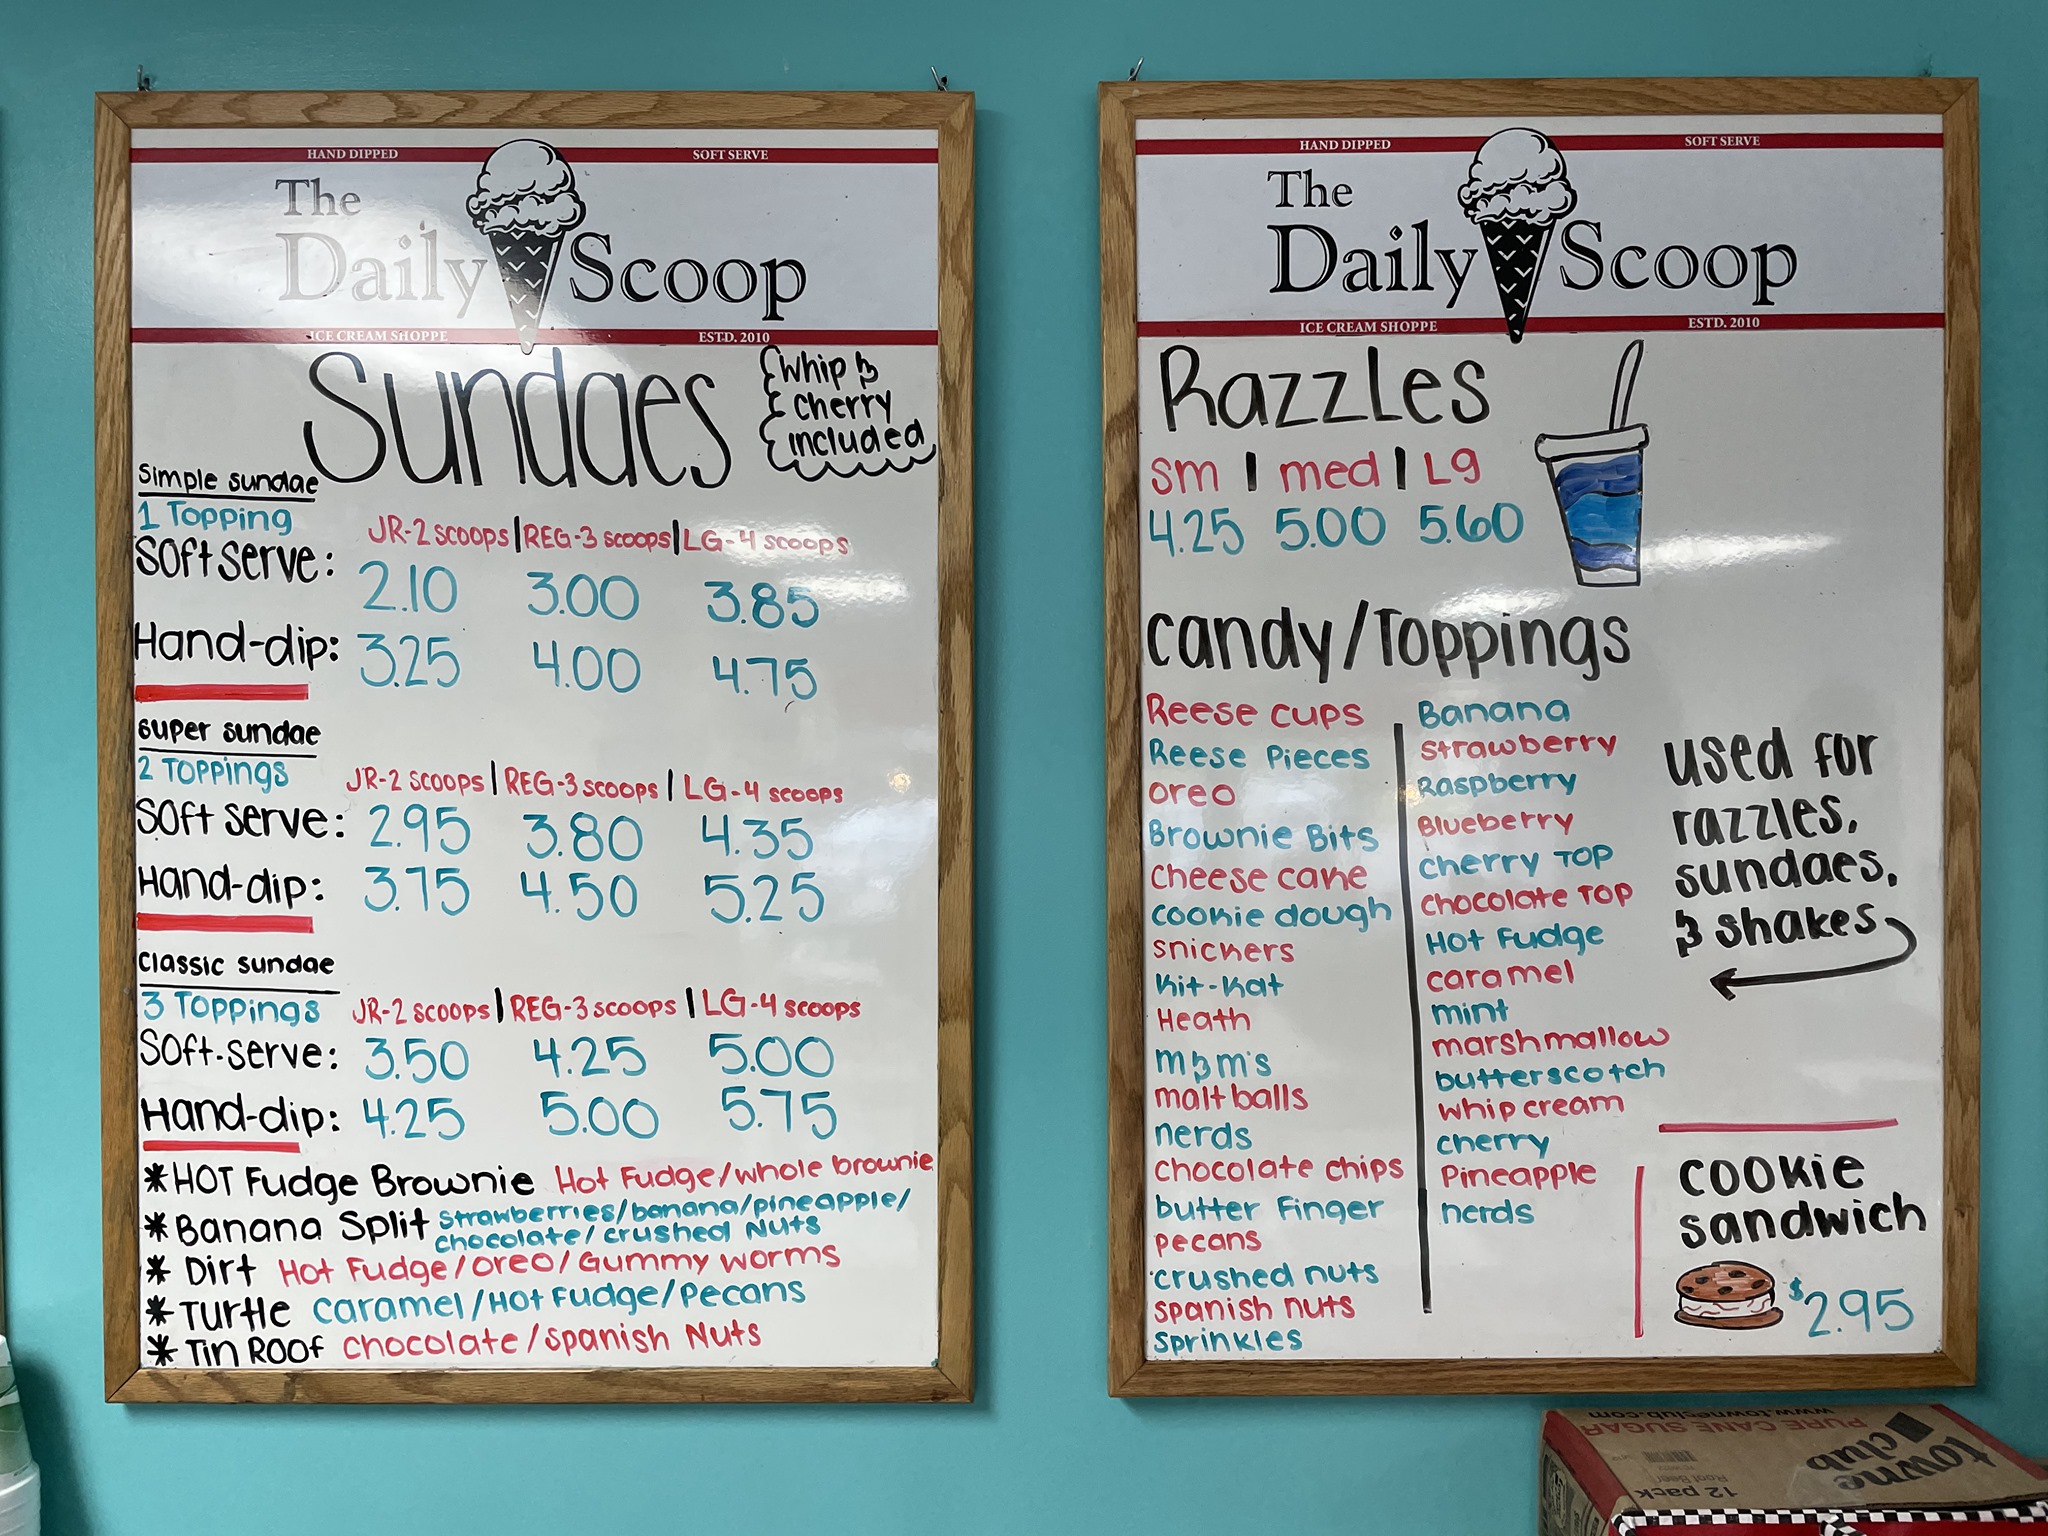 HAND DIPPED SOFT SERVE
The
Daily Scoop
ICE CREAM SHOPPE ESTD. 2010
Sundaes
Whip &
cherry
included
Simple sundae
1 Topping
JR-2 scoops | REG-3 scoops | LG-4 scoops
Soft serve: 2.10 3.00 3.85
Hand-dip: 3.25 4.00 4.75
super sundae
2 Toppings
JR-2 scoops | REG-3 scoops | LG-4 scoops
Soft serve: 2.95 3.80 4.35
Hand-dip: 3.75 4.50 5.25
classic sundae
3 Toppings
JR-2 scoops | REG-3 scoops | LG-4 scoops
Soft-serve: 3.50 4.25 5.00
Hand-dip: 4.25 5.00 5.75
* HOT Fudge Brownie Hot Fudge/whole brownie
* Banana Split strawberries/banana/pineapple/
chocolate/crushed Nuts
* Dirt Hot Fudge/oreo/Gummy worms
* Turtle caramel/Hot Fudge/Pecans
* Tin Roof chocolate/spanish Nuts
HAND DIPPED SOFT SERVE
The
Daily Scoop
ICE CREAM SHOPPE ESTD. 2010
Razzles
sm | med | Lg
4.25 5.00 5.60
candy/Toppings
Reese cups
Reese Pieces
oreo
Brownie Bits
cheese cake
cookie dough
snickers
kit-kat
Heath
m&m's
malt balls
nerds
chocolate chips
butter Finger
pecans
crushed nuts
spanish nuts
sprinkles
Banana
strawberry
Raspberry
Blueberry
cherry TOP
chocolate TOP
Hot Fudge
caramel
mint
marshmallow
butterscotch
whip cream
cherry
Pineapple
nerds
used for
razzles,
sundaes,
& shakes
cookie
sandwich
$2.95
www.towneclub.com
PURE CANE SUGAR
towne
club
Root Beer
12 pack